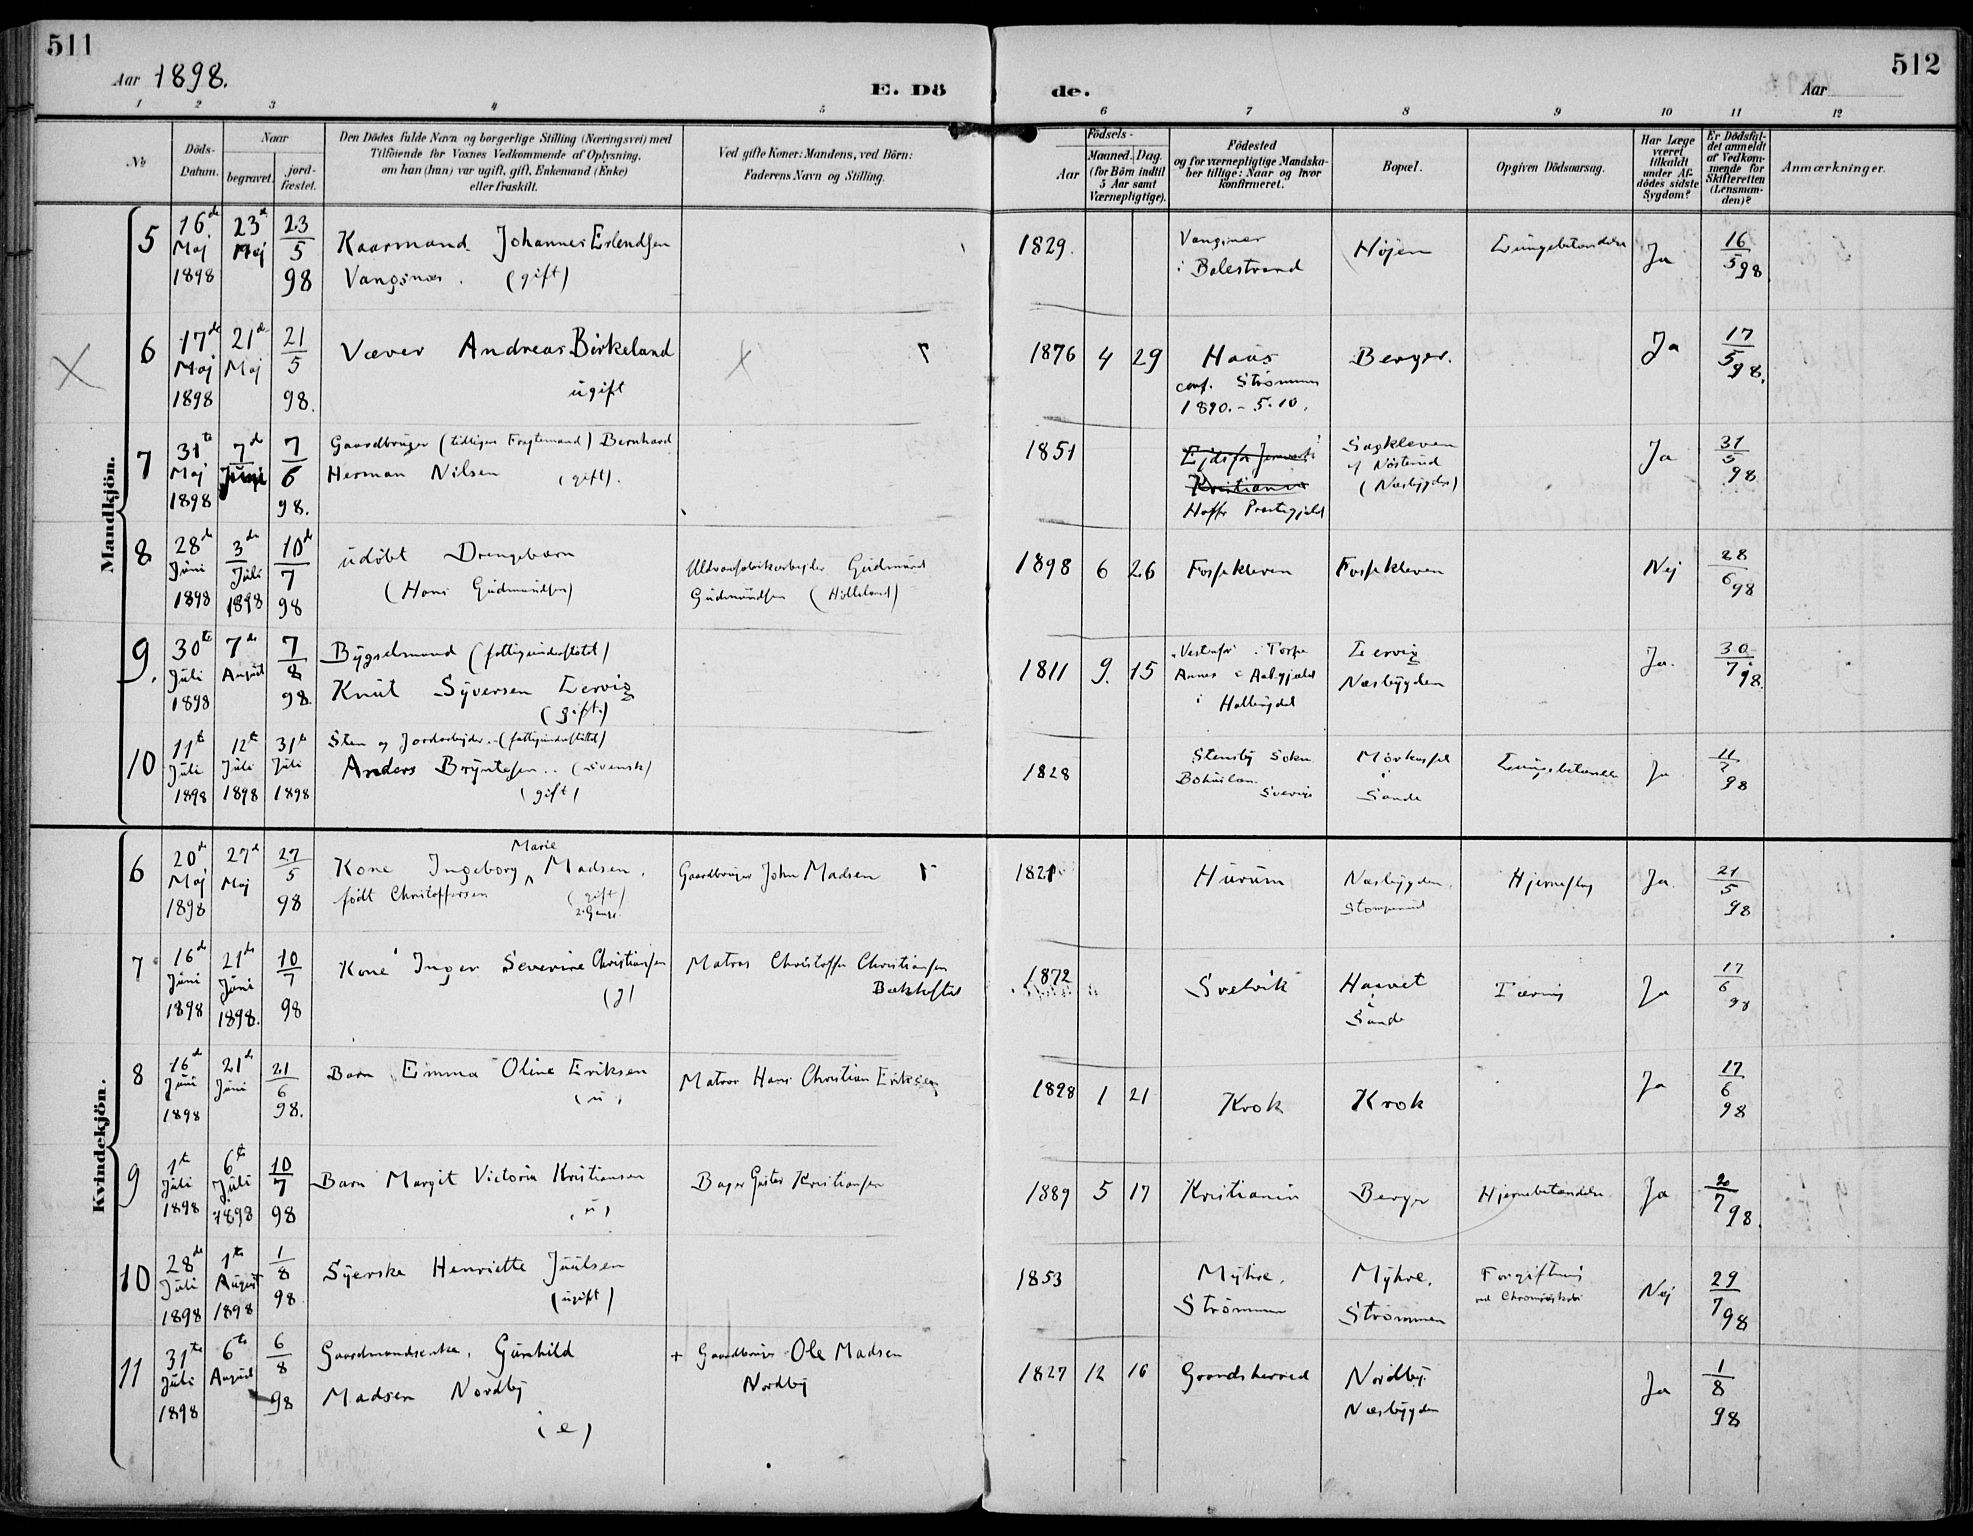 511
512
Aar 1898.
E. Dö
de.
Aar
1 2 3 4 5
6 7 8 9 10 11 12
№
Döds-
Datum.
Naar
begravet.
jord-
fæstet.
Den Dödes fulde Navn og borgerlige Stilling (Næringsvei) med
Tilföiende for Voxnes Vedkommende af Oplysning,
om han (hun) var ugift, gift, Enkemand (Enke)
eller fraskilt.
Ved gifte Koner: Mandens, ved Börn:
Faderens Navn og Stilling.
Födsels-
Aar
Maaned. Dag.
(for Börn indtil
5 Aar samt
Værnepligtige).
Födested
og for værnepligtige Mandska-
ber tillige: Naar og hvor
konfirmeret.
Bopæl.
Opgiven Dödsaarsag.
Har Læge
været
tilkaldt
under Af-
dödes sidste
Sygdom?
Er Dödsfal-
det anmeldt
af Vedkom-
mende for
Skifteretten
(Lensman-
den)?
Anmærkninger.
Mandkjön.
5 16de Maj 1898 23de Maj 23/5 98
Kaarmand Johannes Erlendsen
Vangsnæs. (gift)
1829.
Vangsnæs
i Balestrand
Højen
Lungebetændelse
Ja
16/5 98
6 17de Maj 1898 21de Maj 21/5 98.
Væver Andreas Birkeland
ugift
1876 4 29
Haus
conf. Strømmen
1890. - 5.10.
Berger.
Ja
17/5 98.
7 31te Maj 1898 7de Juni 7/6 98.
Gaardbruger (tidligere Fragtemand) Bernhard
Herman Nilsen (gift).
1851
Kristiania
Hoffs Prestegjeld
Sagkleven
u/ Nøsterud
(Næsbygden)
Ja
31/5 98
8 28de Juni 1898 3de Juli 1898 10de/7 98
udøbt Drengebarn
(Hans Gudmundsen)
Uldvarefabrikarbejder Gudmund
Gudmundsen
1898 6 26
Fossekleven
Fossekleven
Nej
28/6 98
9. 30te Juli 1898 7de August 7/8 98.
Bygselmand (fattigunderstøttet)
Knut Syversen Lervig
(gift.)
1811 9. 15
i Torpe
Annex i Aals gjæld
i Hallingdal
Lervig
Næsbygden
Ja.
30/7 98.
10 11te Juli 1898 12te Juli 1898 31te Juli 1898
Sten og Jordarbejder. (fattigunderstøttet)
Anders Bryntesen.. (svensk)
(gift)
1828
Stensby Sokn
Bohuslan
Sverige
i
Sande
Lungebetændelse
Ja
11/7 98
Kvindekjön.
6 20de Maj 1898 27de Maj 27/5 98
Marie
Kone Ingeborg Madsen.
født Christoffersen (gift)
2. Gange
Gaardbruger John Madsen
1821
Hurum
Næsbygden.
Hjerneslag
Ja.
21/5 98
7 16de Juni 1898 21de Juni 1898. 10/7 98
Kone Inger Severine Christiansen
(g)
Matros Christoffer Christiansen
1872
Svelvik
Haavet
i
Sande
Tæring
Ja
17/6 98
8 16de Juni 1898 21de Juni 21/6 98.
Barn Emma Oline Eriksen
(u)
Matros Hans Christian Eriksen
1898 1 21
Krok
Krok
Ja
17/6 98
9 1te Juli 1898 6te Juli 1898 10/7 98
Barn Margit Victoria Kristiansen
(u)
Bager Gustav Kristiansen
1889 5 17
Kristiania
Berger
Hjernebetændelse
Ja
20/7 98.
10 28de Juli 1898 1te August 1898 1/8 98
Syerske Henriette Juulsen
(ugift)
1853
Myhre.
Strømmen
Myhre.
Strømmen
Forgiftning
Nej
29/7 98
11 31te Juli 1898 6te August 6/8 98
Gaardmandsenke. Gunhild
Madsen Nordby
(e)
+ Gaardbruger Ole Madsen
Nordby
1827 12 16
Grandsherred
Nordby
Næsbygden
Ja
1/8 98